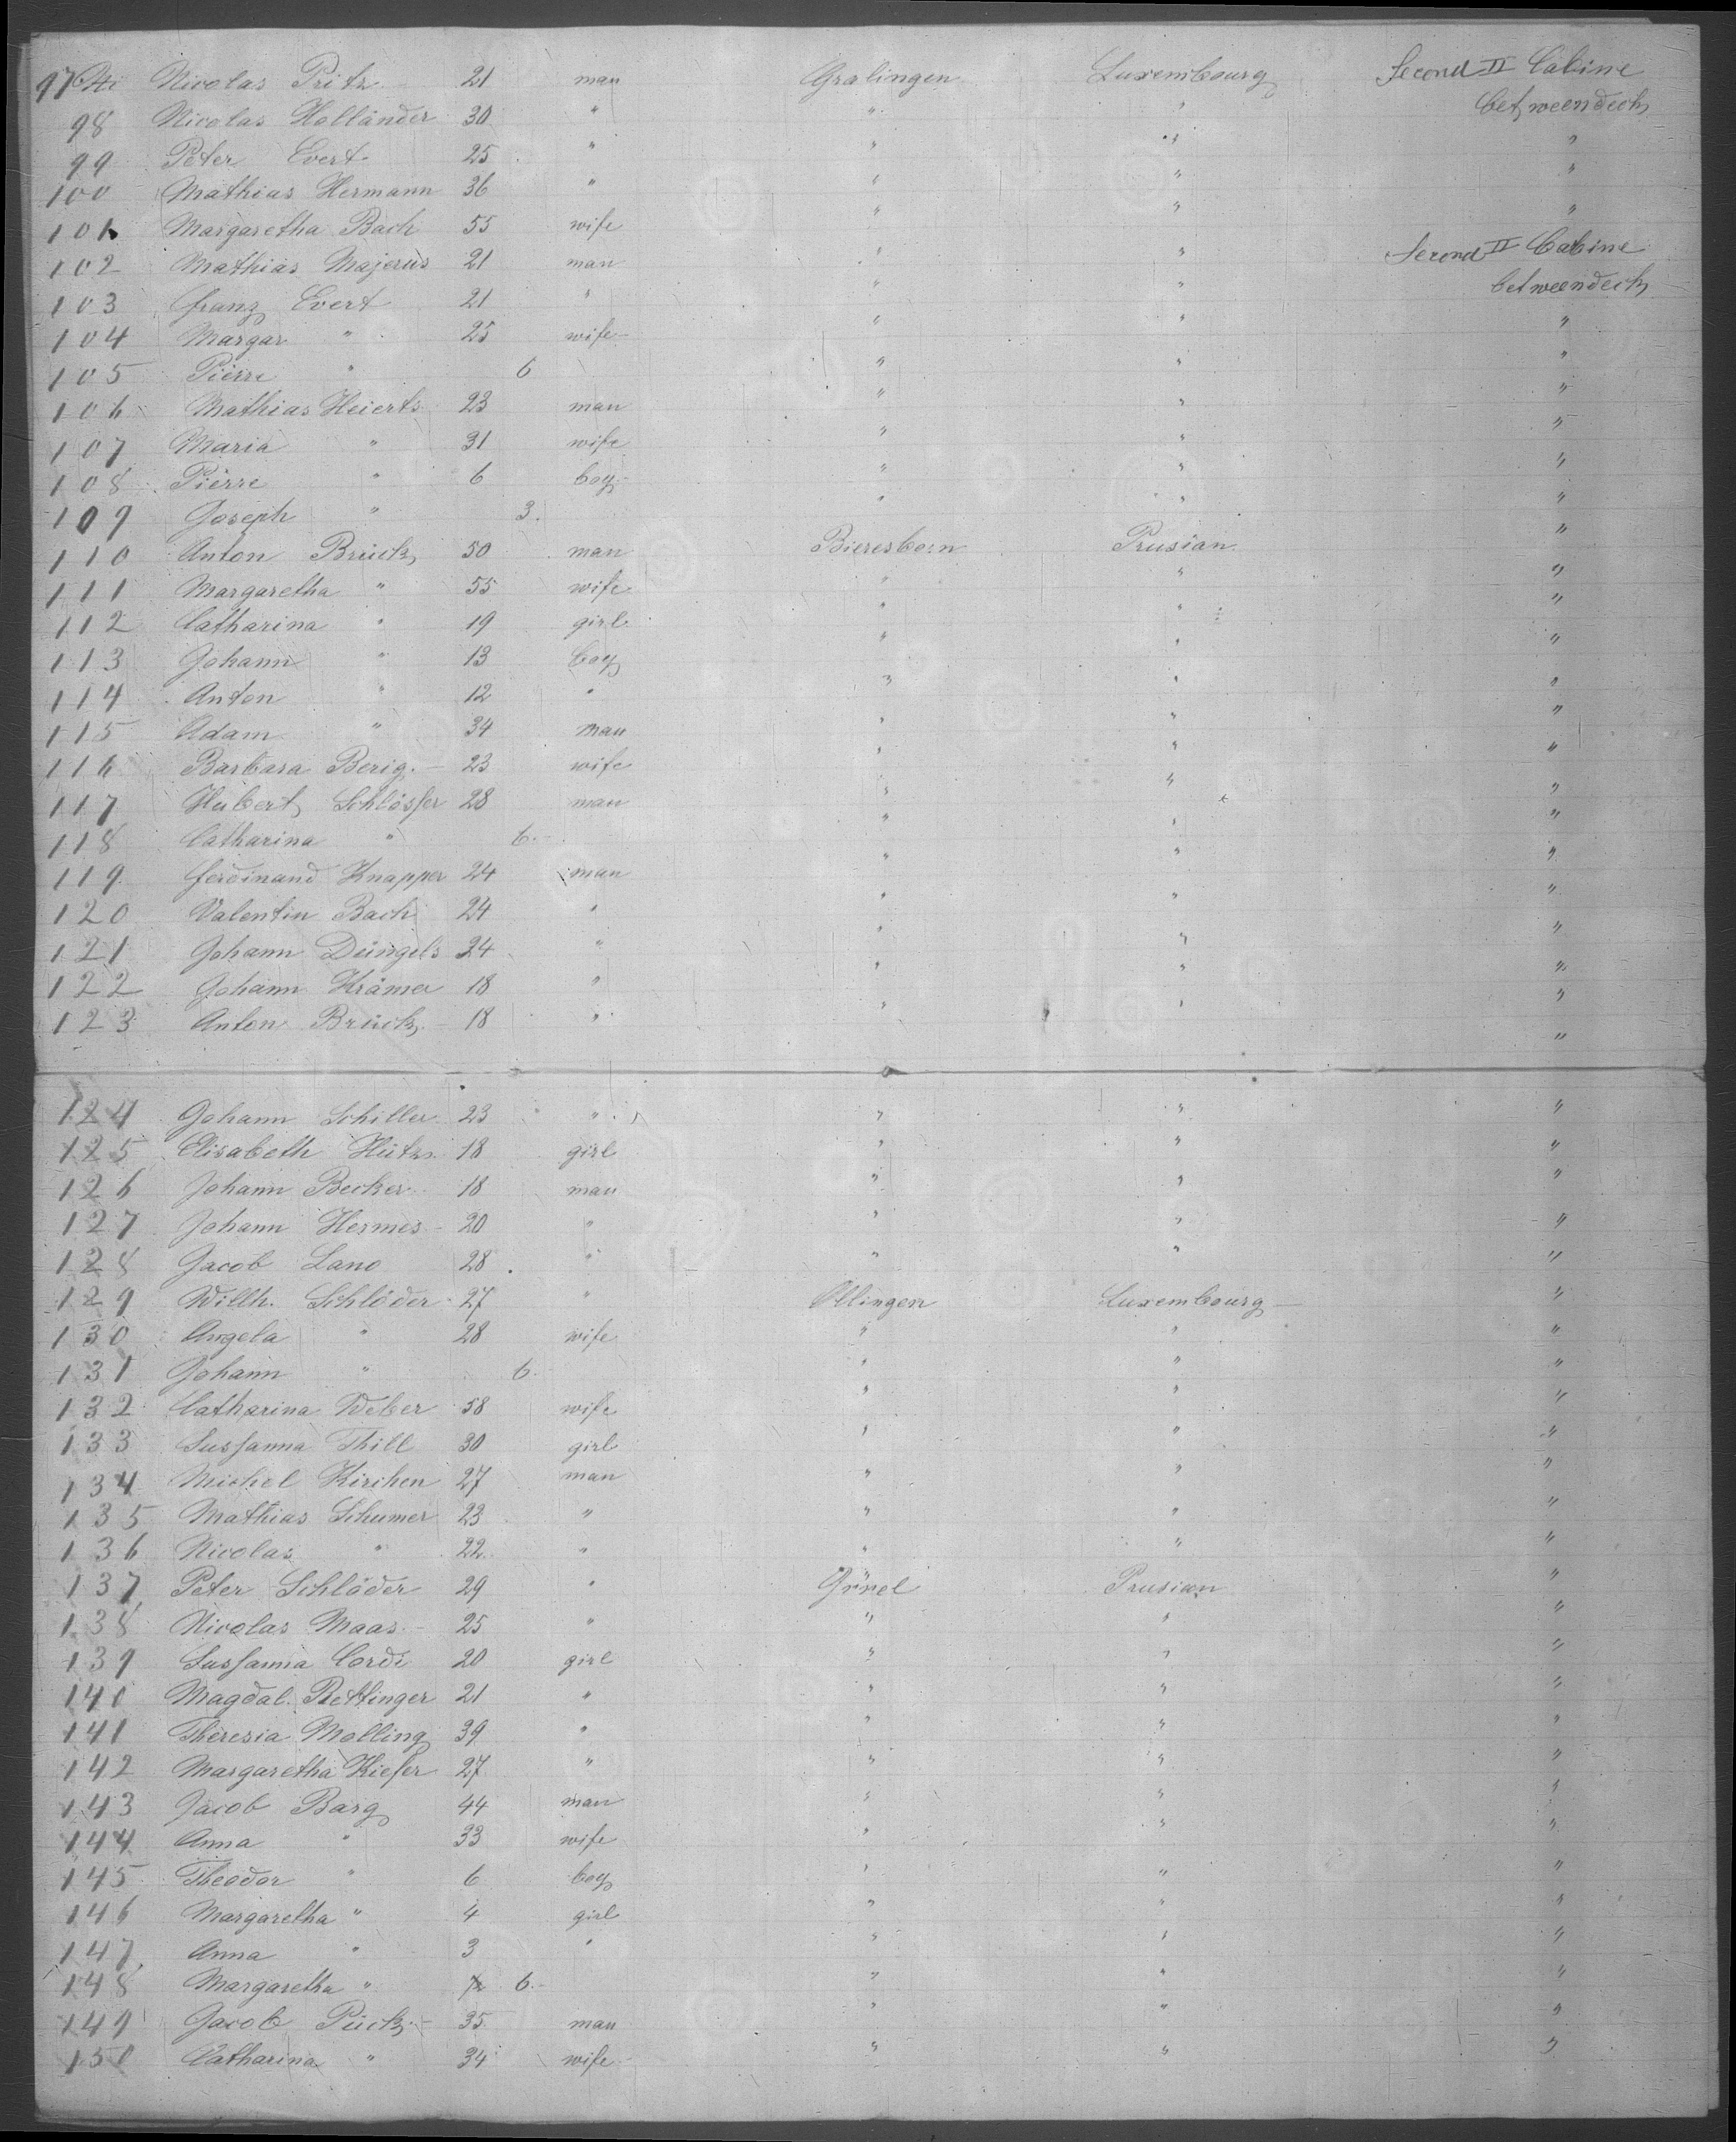 97 Nicolas Pritz 21 man Gralingen Luxembourg Second II Cabine
98 Nicolas Holländer 30 " " " betweendeck
99 Peter Evert 25 " " " "
100 Mathias Hermann 36 " " " "
101 Margaretha Bach 55 wife " " "
102 Mathias Majerus 21 man " " Second II Cabine
103 Franz Evert 21 " " " betweendeck
104 Margar " 25 wife " " "
105 Pierre " 6 " " "
106 Mathias Heierts 23 man " " "
107 Maria " 31 wife " " "
108 Pierre " 6 boy " " "
109 Joseph " 3 " " "
110 Anton Brück 50 man Bieresborn Prusian "
111 Margaretha " 55 wife " " "
112 Catharina " 19 girl " " "
113 Johann " 13 boy " " "
114 Anton " 12 " " " "
115 Adam " 34 man " " "
116 Barbara Berig. 23 wife " " "
117 Hubert Schlösser 28 man " " "
118 Catharina " 6 " " "
119 Ferdinand Knapper 24 man " " "
120 Valentin Bach 24 " " " "
121 Johann Düngels 24 " " " "
122 Johann Krämer 18 " " " "
123 Anton Brück 18 " " " "
124 Johann Schiller 23 " " " "
125 Elisabeth Hütz 18 girl " " "
126 Johann Becker 18 man " " "
127 Johann Hermes 20 " " " "
128 Jacob Lano 28 " " " "
129 Willh. Schlöder 27 " Ollingen Luxembourg "
130 Angela " 28 wife " " "
131 Johann " 6 " " "
132 Catharina Weber 58 wife " " "
133 Sussanna Thill 30 girl " " "
134 Michel Kirchen 27 man " " "
135 Mathias Schumer 23 " " " "
136 Nicolas " 22 " " " "
137 Peter Schlöder 29 " Prusian "
138 Nicolas Maas 25 " " " "
139 Sussanna Cordi 20 girl " " "
140 Magdal. Rettinger 21 " " " "
141 Theresia Molling 39 " " " "
142 Margaretha Kiefer 27 " " " "
143 Jacob Barg 44 man " " "
144 Anna " 33 wife " " "
145 Theodor " 6 boy " " "
146 Margaretha " 4 girl " " "
147 Anna " 3 " " " "
148 Margaretha " 6 " " "
149 Jacob Pück 35 man " " "
150 Catharina " 34 wife " " "